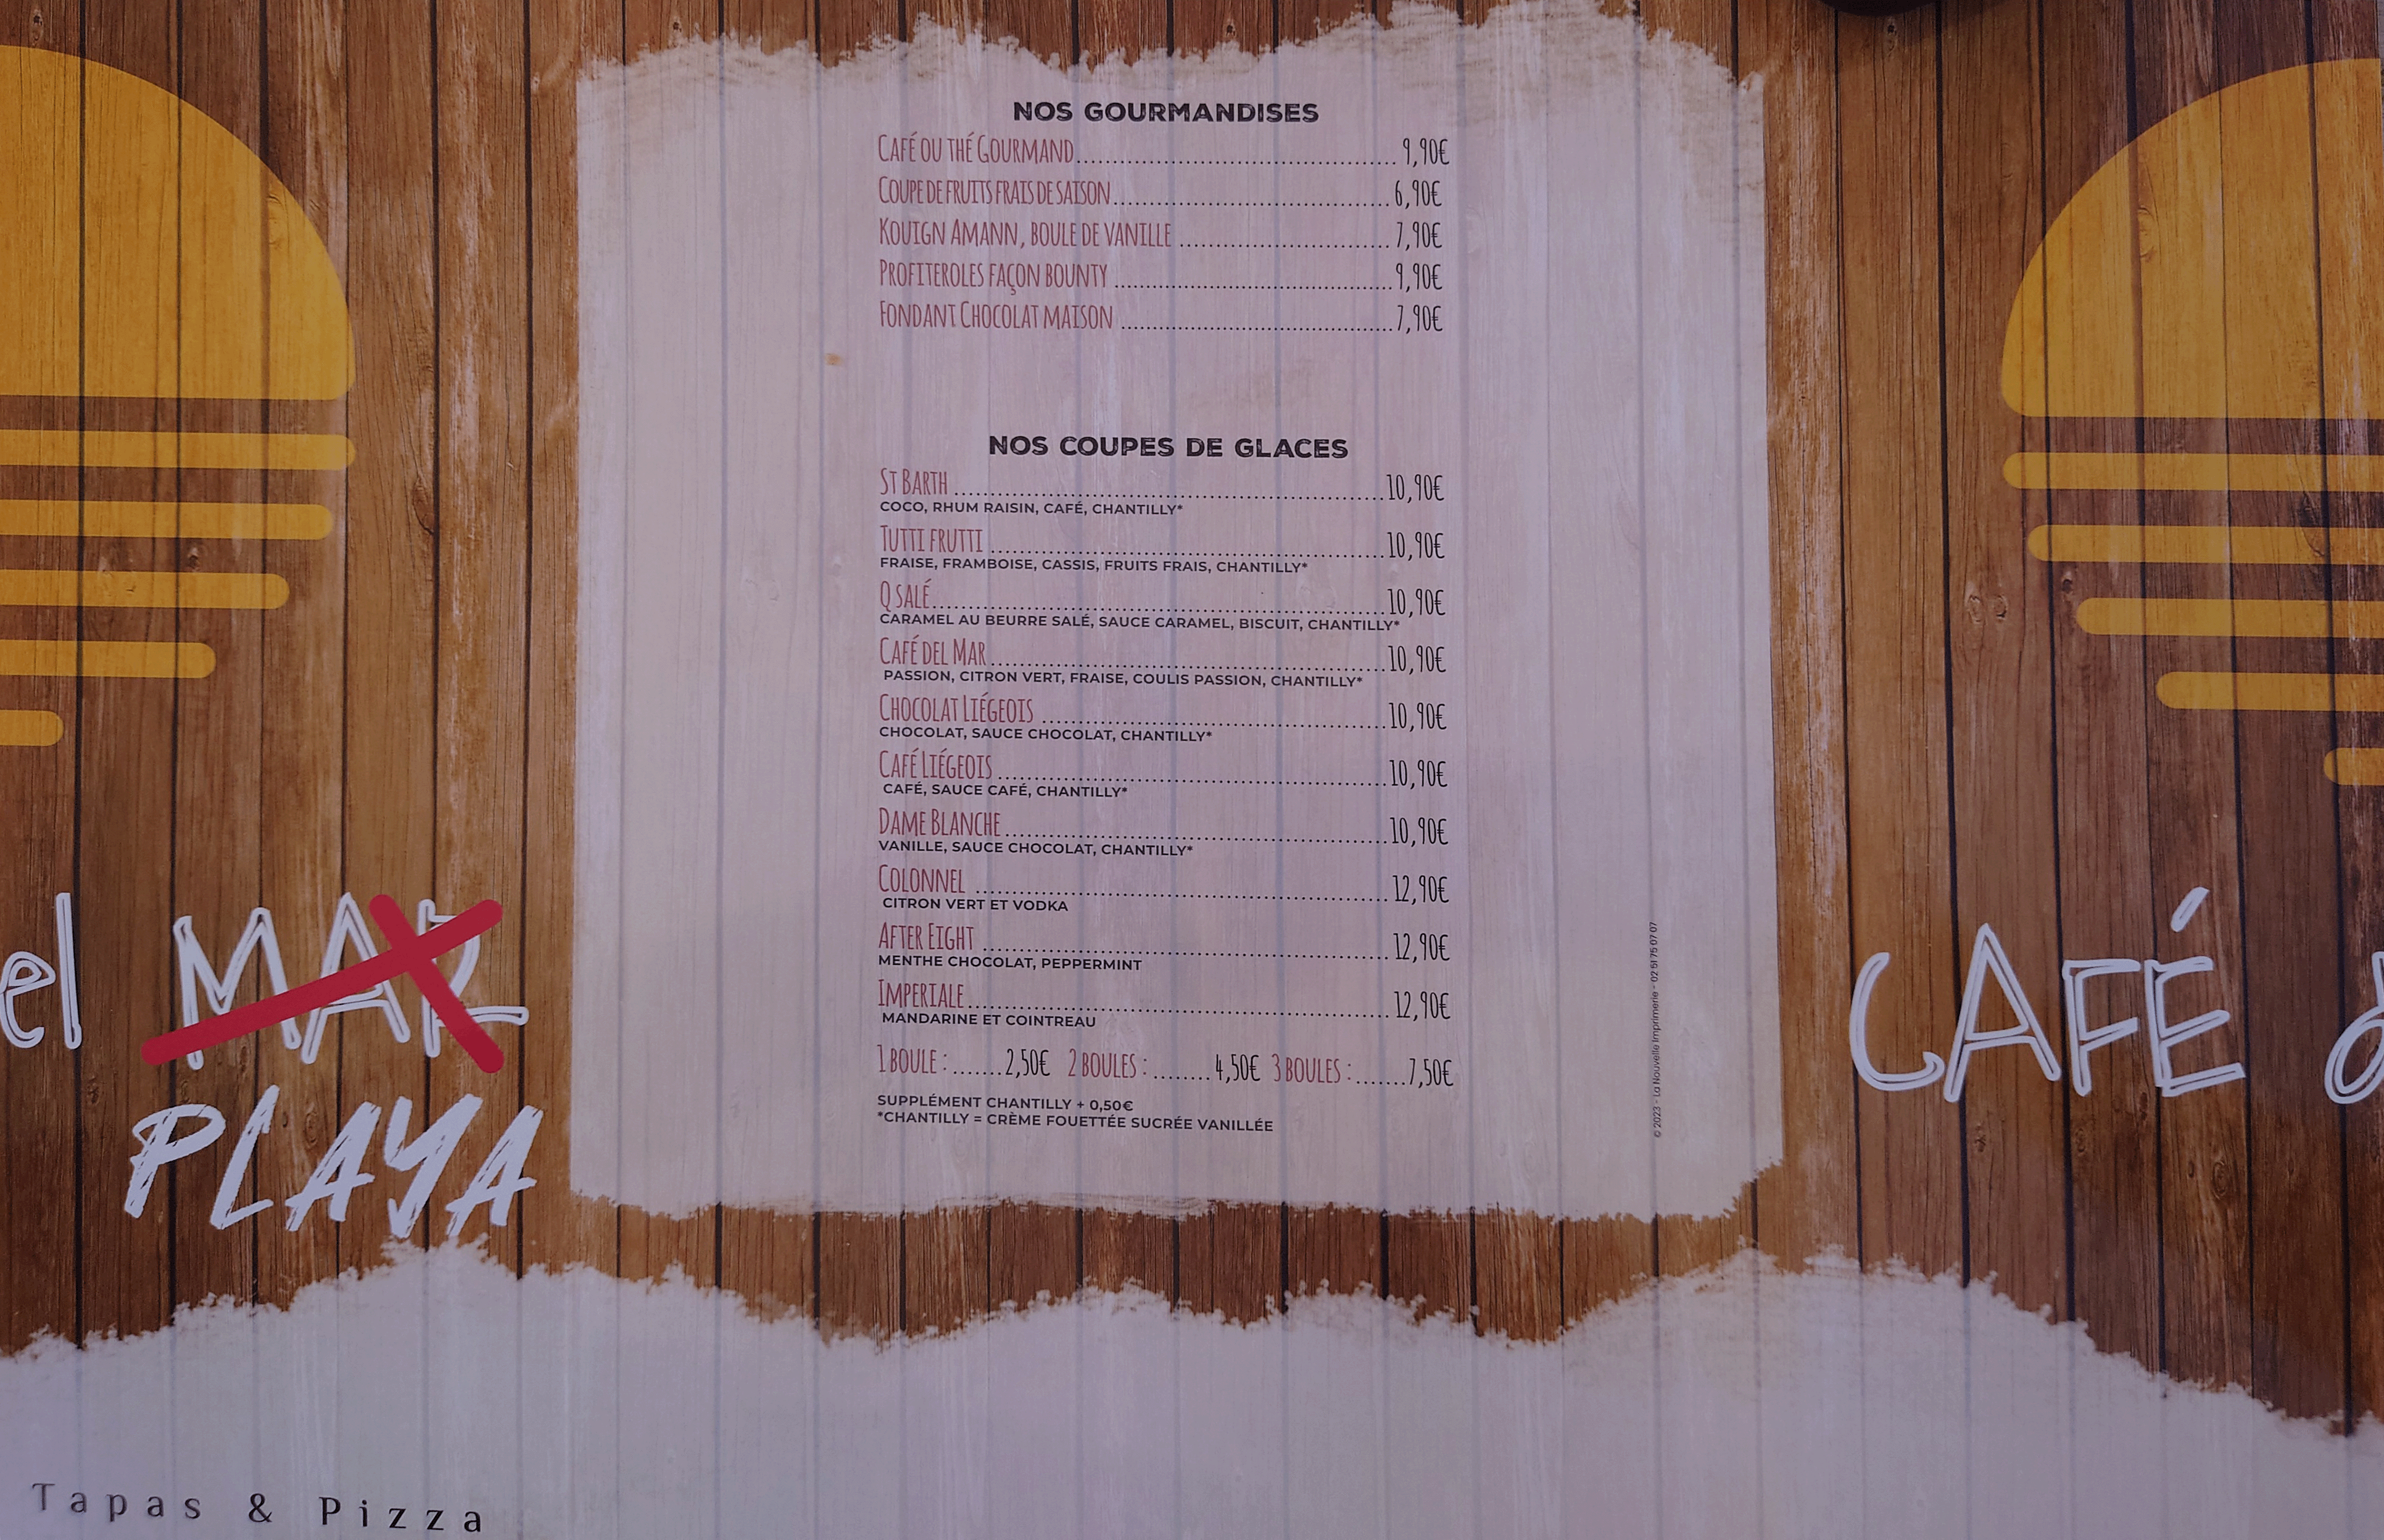 NOS GOURMANDISES
CAFÉ OU THÉ GOURMAND.......... 9,90€
COUPE DE FRUITS FRAIS DE SAISON.......... 6,90€
KOUIGN AMANN, BOULE DE VANILLE .......... 7,90€
PROFITEROLES FAÇON BOUNTY .......... 9,90€
FONDANT CHOCOLAT MAISON .......... 7,90€
NOS COUPES DE GLACES
ST BARTH .......... 10,90€
COCO, RHUM RAISIN, CAFÉ, CHANTILLY*
TUTTI FRUTTI .......... 10,90€
FRAISE, FRAMBOISE, CASSIS, FRUITS FRAIS, CHANTILLY*
Q SALÉ.......... 10,90€
CARAMEL AU BEURRE SALÉ, SAUCE CARAMEL, BISCUIT, CHANTILLY*
CAFÉ DEL MAR.......... 10,90€
PASSION, CITRON VERT, FRAISE, COULIS PASSION, CHANTILLY*
CHOCOLAT LIÉGEOIS .......... 10,90€
CHOCOLAT, SAUCE CHOCOLAT, CHANTILLY*
CAFÉ LIÉGEOIS .......... 10,90€
CAFÉ, SAUCE CAFÉ, CHANTILLY*
DAME BLANCHE.......... 10,90€
VANILLE, SAUCE CHOCOLAT, CHANTILLY*
COLONNEL .......... 12,90€
CITRON VERT ET VODKA
AFTER EIGHT .......... 12,90€
MENTHE CHOCOLAT, PEPPERMINT
IMPERIALE.......... 12,90€
MANDARINE ET COINTREAU
1 BOULE : .......2,50€ 2 BOULES : ........4,50€ 3 BOULES : .......7,50€
SUPPLÉMENT CHANTILLY + 0,50€
*CHANTILLY = CRÈME FOUETTÉE SUCRÉE VANILLÉE
© 2023 - La Nouvelle Imprimerie - 02 51 75 07 07
el MAR
PLAYA
CAFÉ d
Tapas & Pizza